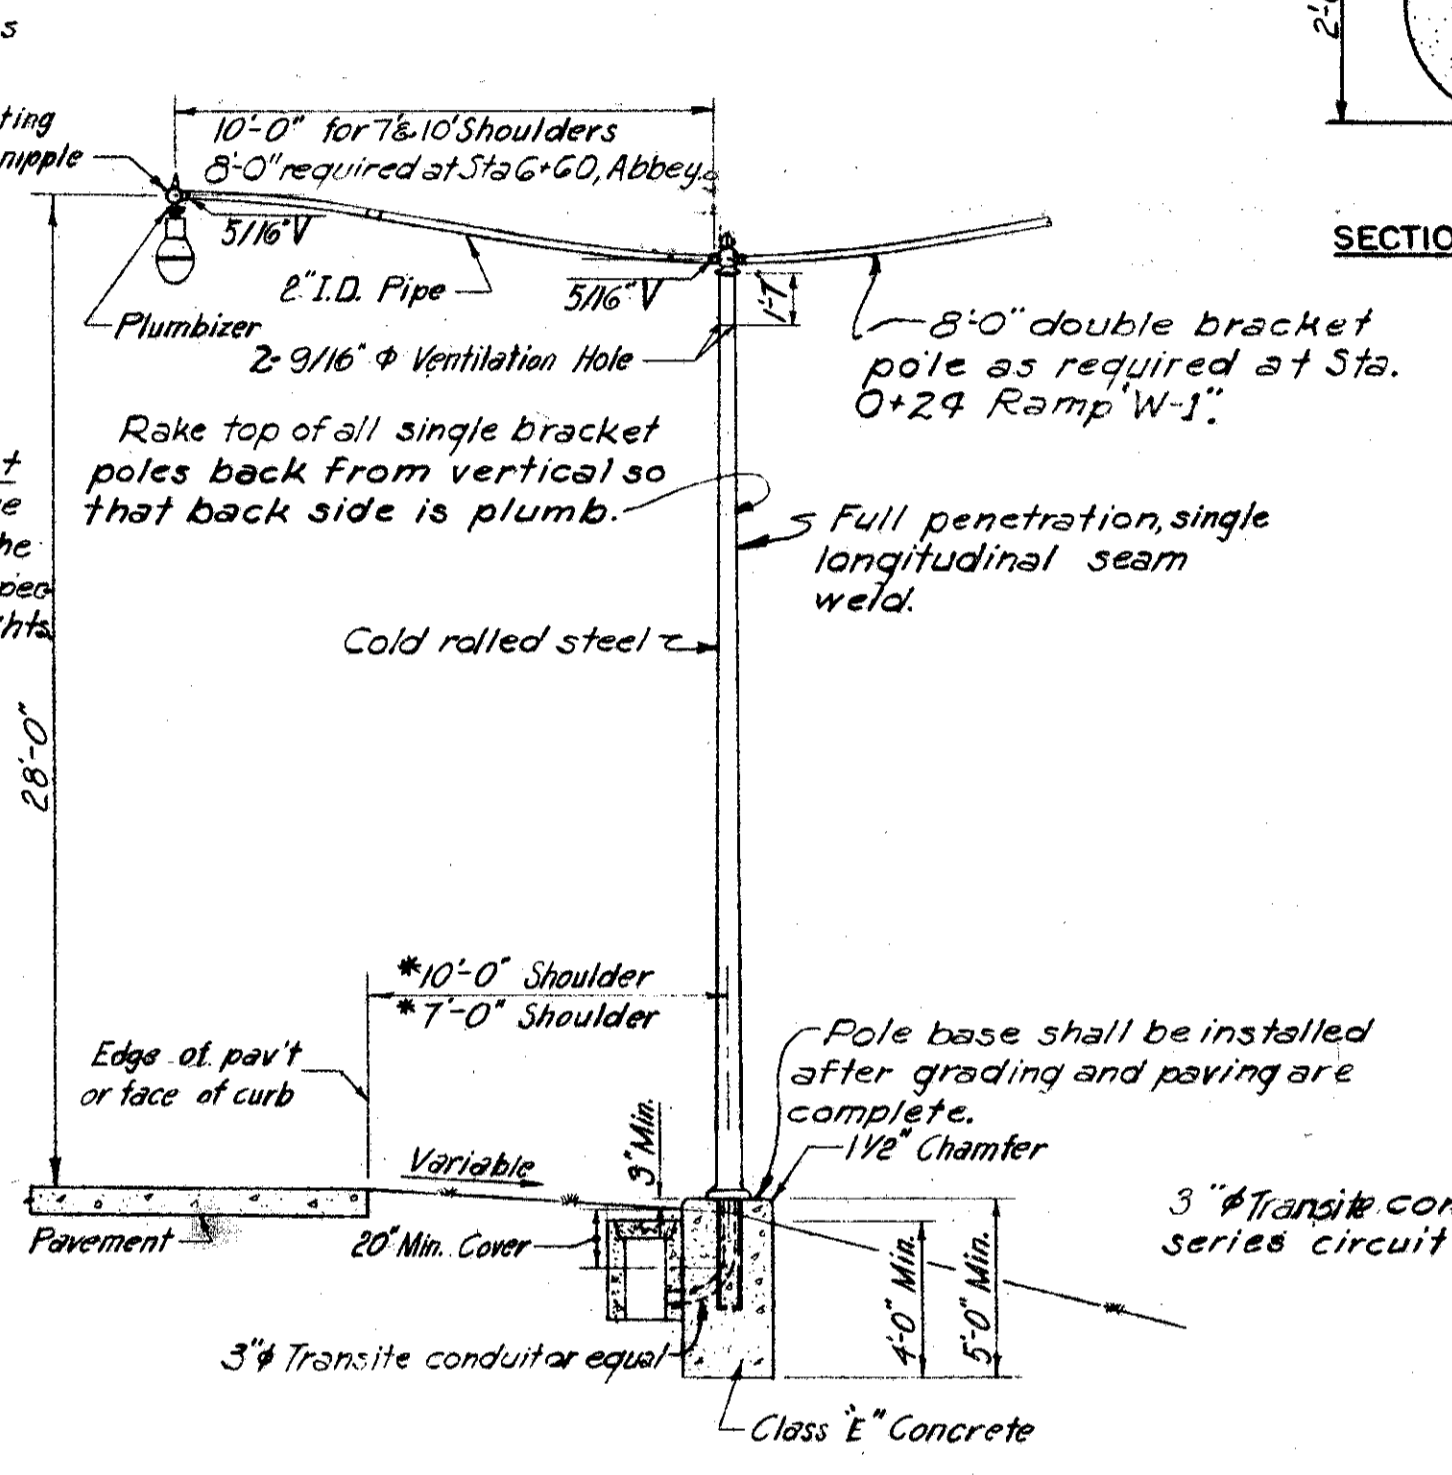 s
ting
nipple
10'-0" for 7'&10' Shoulders
8'-0" required at Sta 6+60, Abbey.
2'-
5/16" V
2" I.D. Pipe
5/16" V
1'-7"
SECTIO
Plumbizer
2-9/16" Φ Ventilation Hole
8'-0" double bracket
pole as required at Sta.
0+24 Ramp "W-1".
Rake top of all single bracket
poles back from vertical so
that back side is plumb.
t
e
he
pec
hts
Full penetration, single
longitudinal seam
weld.
Cold rolled steel
28'-0"
*10'-0" Shoulder
*7'-0" Shoulder
Edge of pav't
or face of curb
Pole base shall be installed
after grading and paving are
complete.
3" Min.
1 1/2" Chamfer
Variable
Pavement
20" Min. Cover
4'-0" Min.
5'-0" Min.
3"Φ Transite con
series circuit
3"Φ Transite conduit or equal
Class "E" Concrete